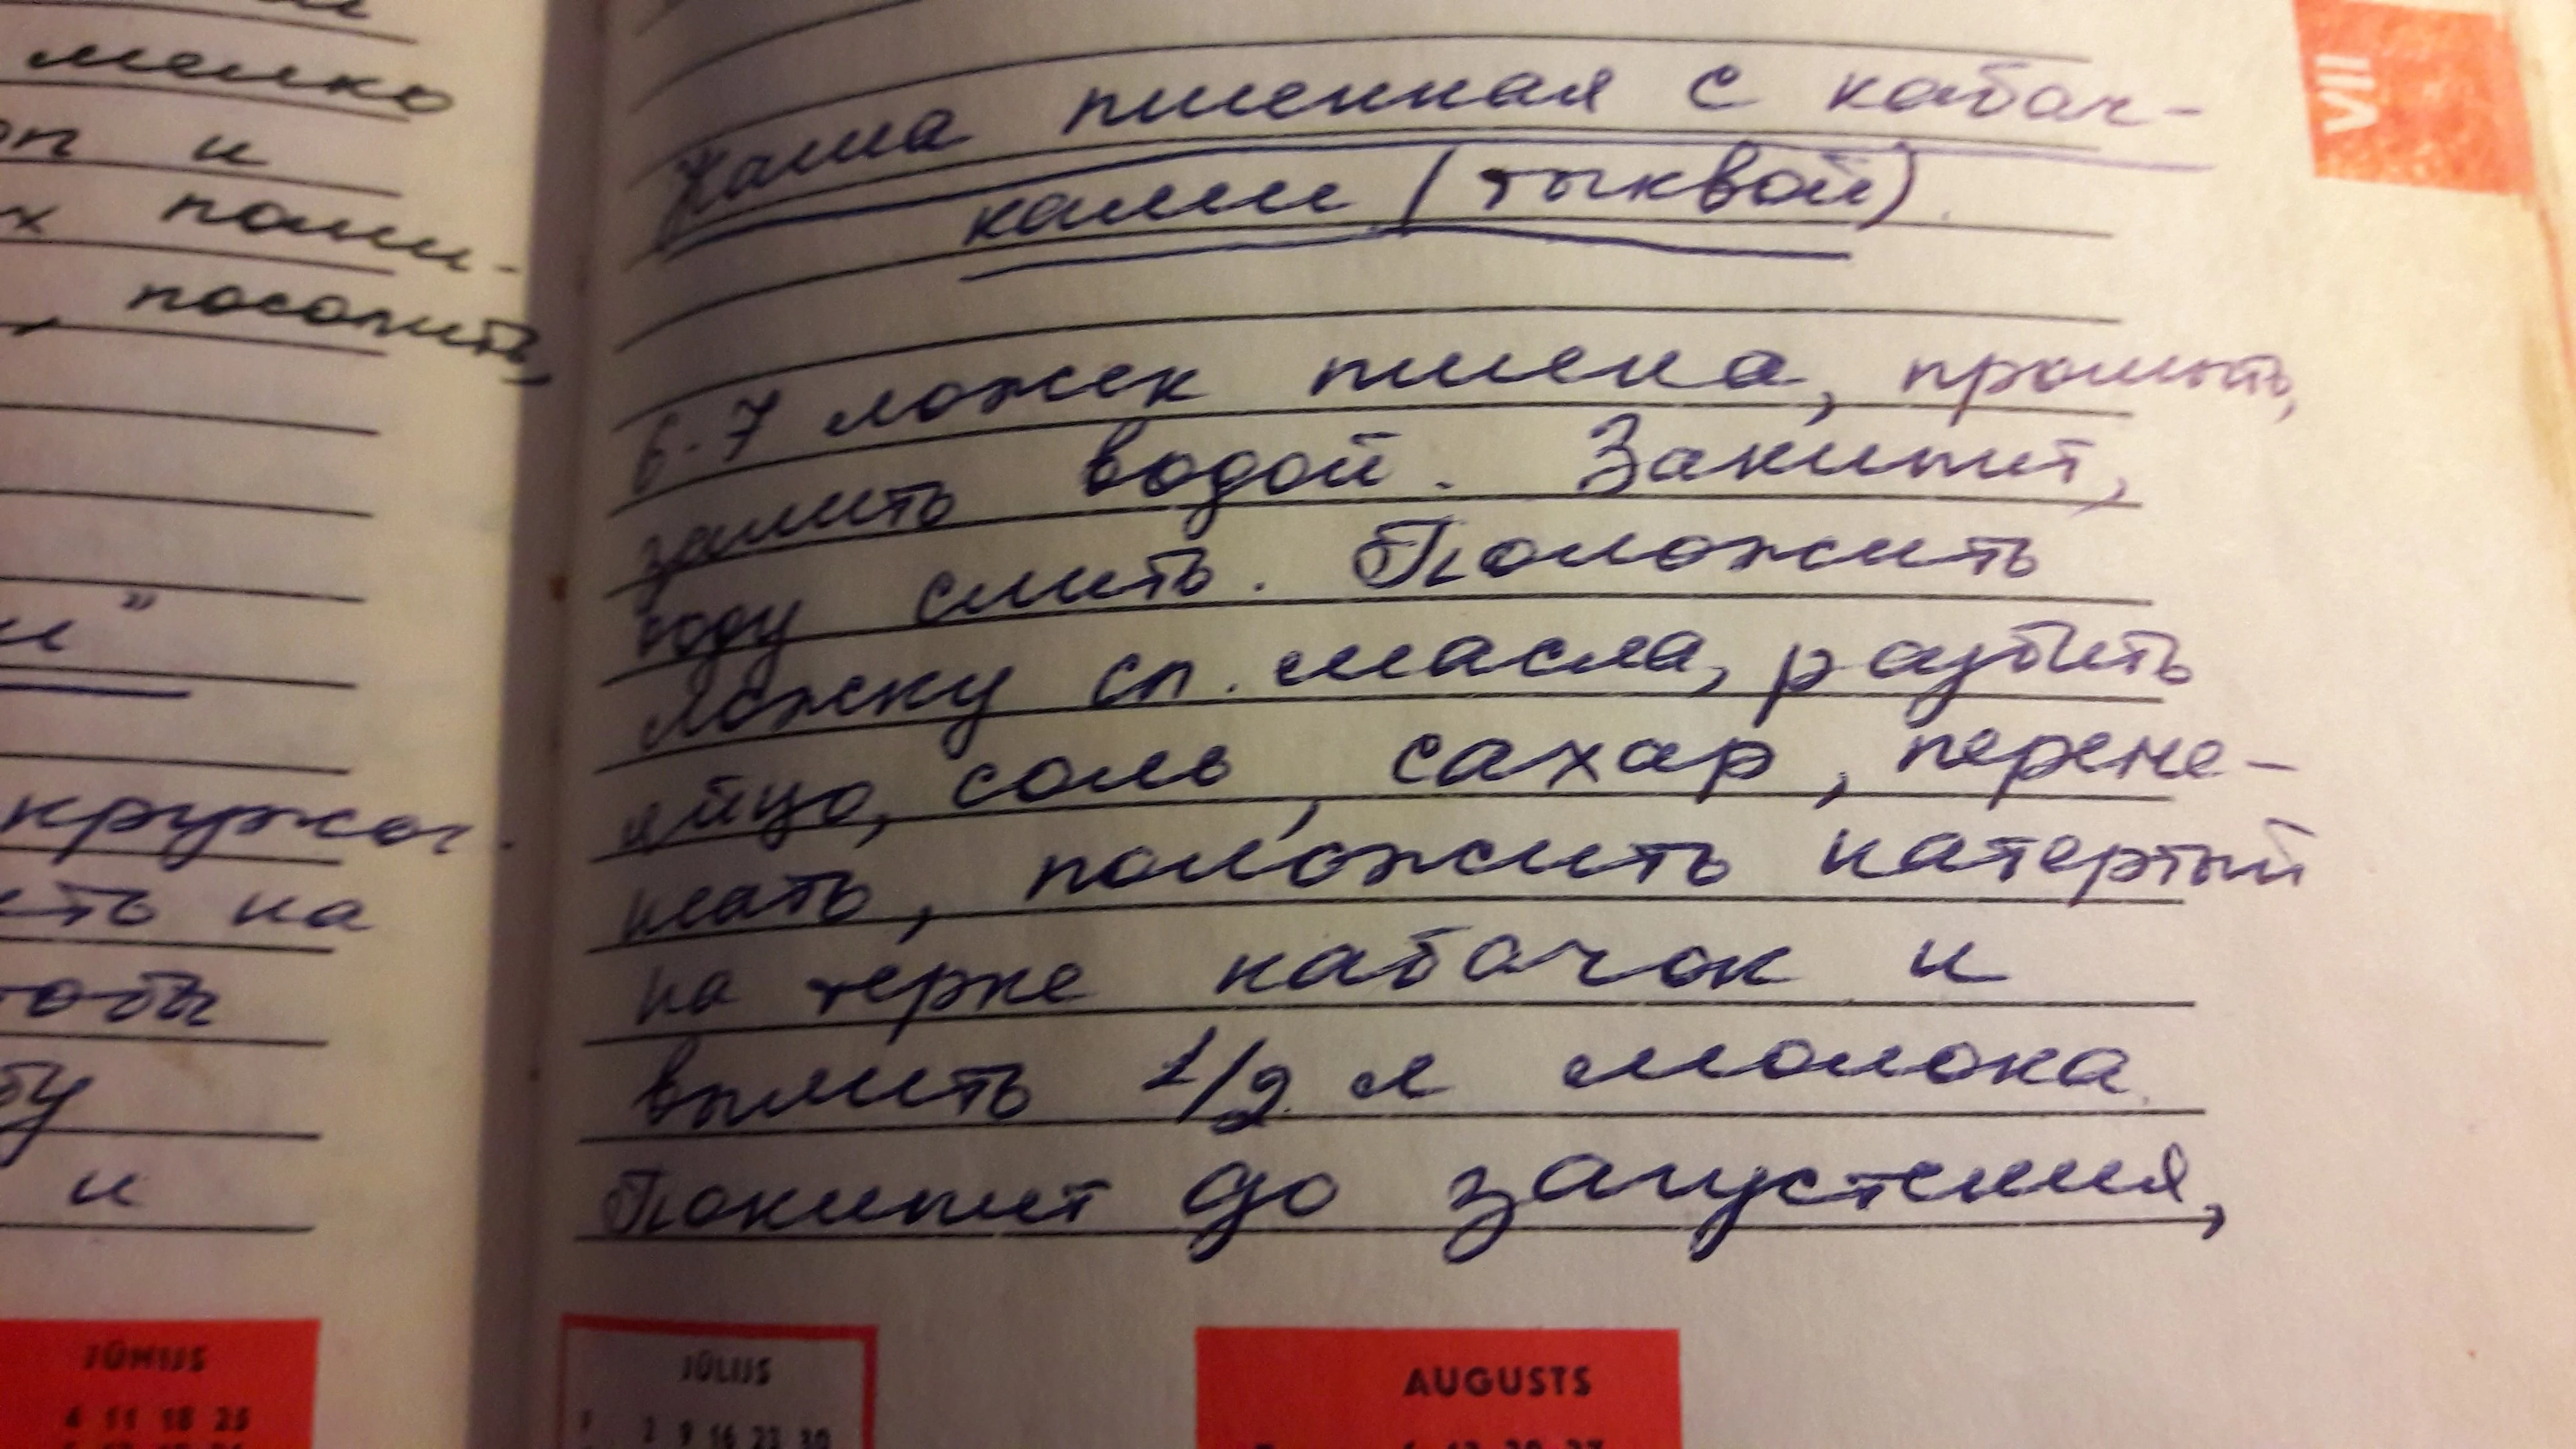 мелко
и
поми-
, посолить,
и"
кружоч.
на
и
VII
Каша пшенная с кабач-
ками (тыквой).
6-7 ложек пшена, промыть,
залить водой. Закипит,
воду слить. Положить
ложку сл. масла, разбить
яйцо, соль, сахар, переме-
шать, положить натертый
на терке кабачок и
вылить 1/2 л молока.
Покипит до загустения,
JŪNIJS
4 11 18 25
JŪLIJS
2 9 16 23 30
AUGUSTS